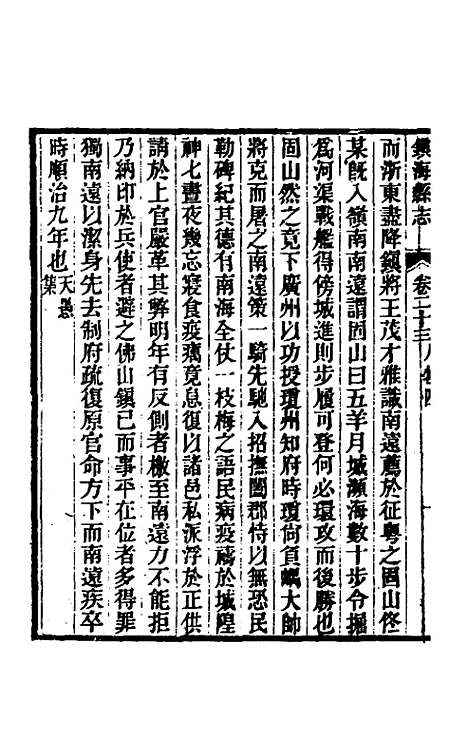 鎮海縣志 卷二十三 人物四
而浙東盡降鎮將王茂才雅識南遠薦於征粵之固山佟
某旣入嶺南南遠謂固山曰五羊月城瀕海數十步令掘
爲河渠戰艦得傍城進則步履可登何必環攻而後勝也
固山然之竟下廣州以功授瓊州知府時瓊尙負嵎大帥
將克而屠之南遠策一騎先馳入招撫闔郡恃以無恐民
勒碑紀其德有南海全仗一枝梅之語民病疫禱於城隍
神七晝夜幾忘寢食疫癘竟息復以諸邑私派浮於正供
請於上官嚴革其弊明年有反側者檄至南遠力不能拒
乃納印於兵使者避之佛山鎮已而事平在位者多得罪
獨南遠以潔身先去制府疏復原官命方下而南遠疾卒
時順治九年也天愚集